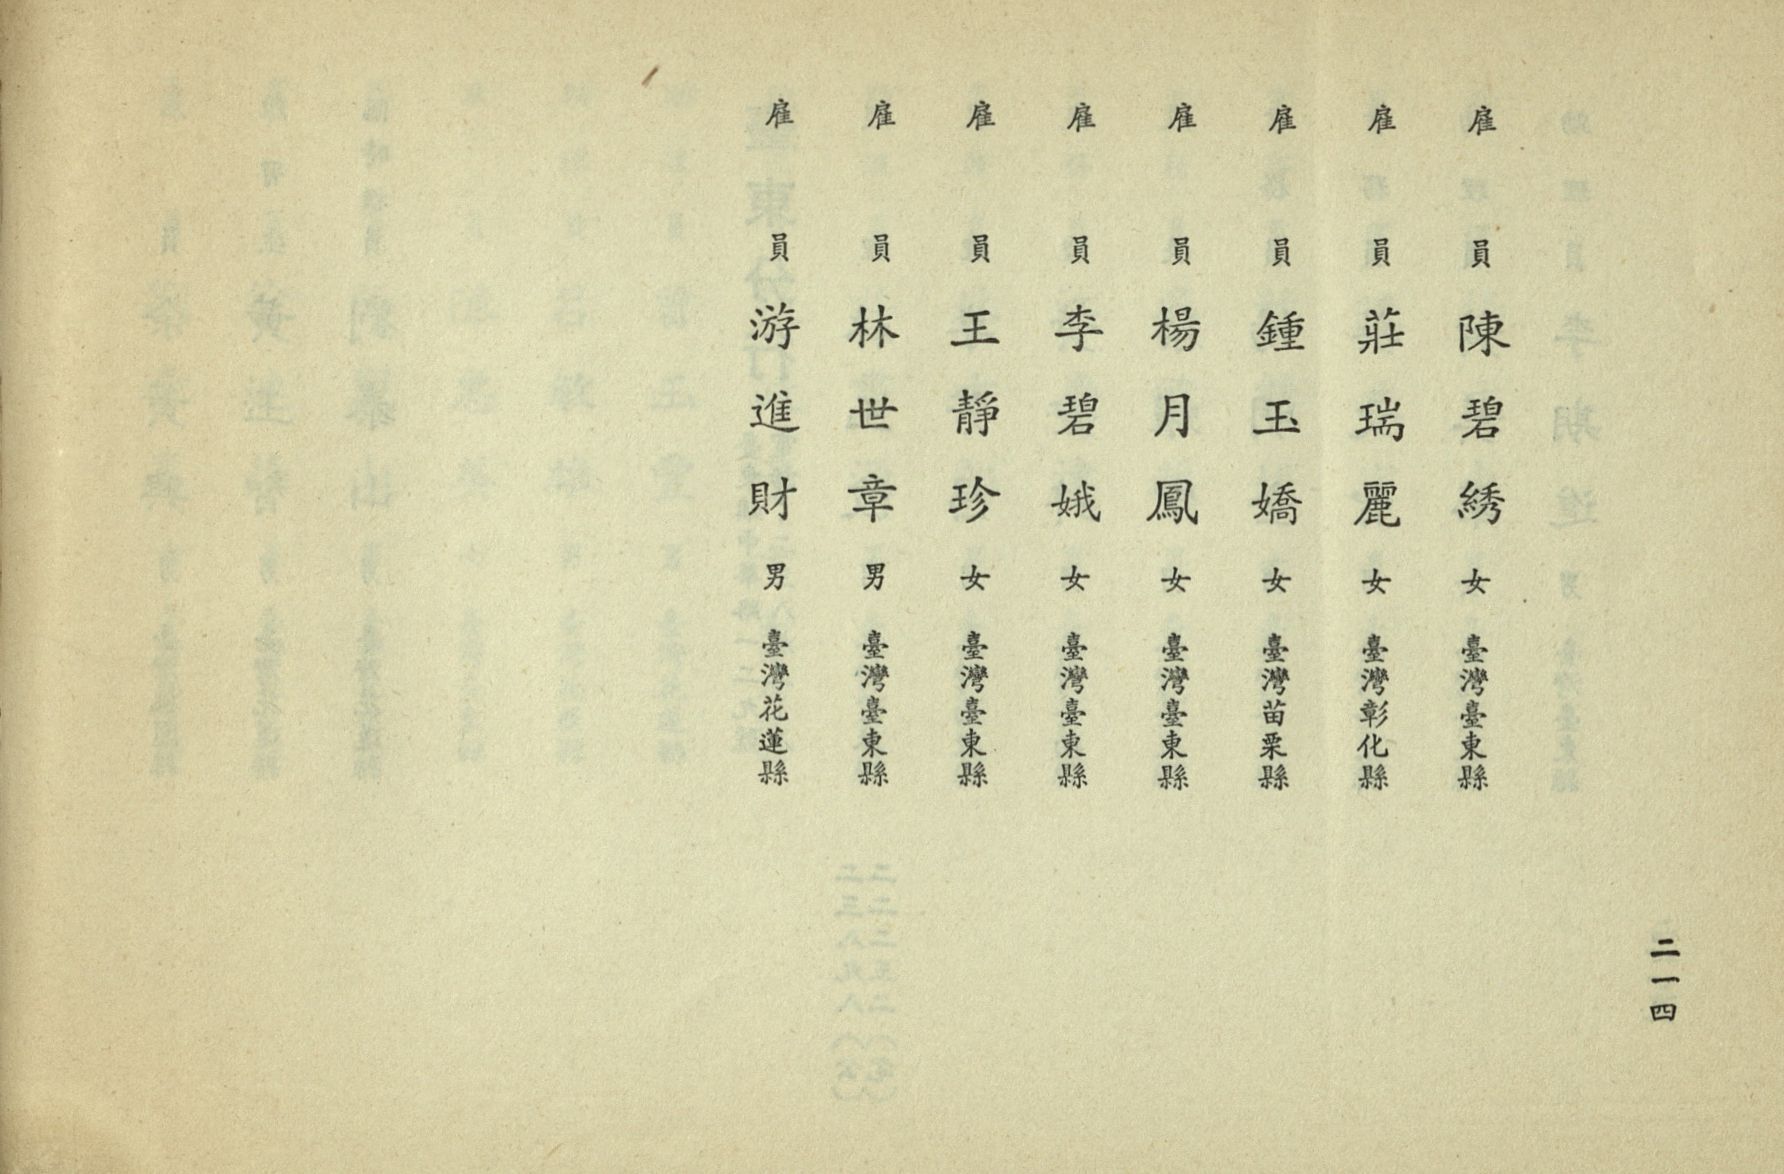 雇員陳碧綉女臺灣臺東縣
雇員莊瑞麗女臺灣彰化縣
雇員鍾玉嬌女臺灣苗栗縣
雇員楊月鳳女臺灣臺東縣
雇員李碧娥女臺灣臺東縣
雇員王靜珍女臺灣臺東縣
雇員林世章男臺灣臺東縣
雇員游進財男臺灣花蓮縣
二一四